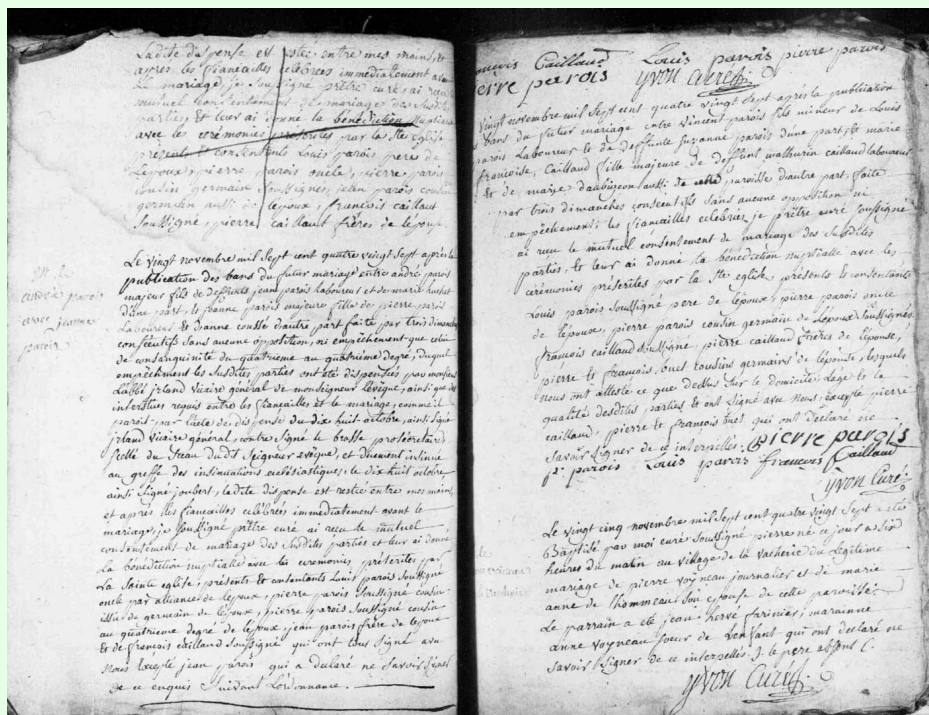 Ladite dispense est restée entre mes mains, et
après les fiancailles célébrées immediatement avant
Le mariage, je soussigné prêtre curé ai reçu
mutuel consentement de mariage des susdites
parties et leur ai donné la bénédiction nuptiale
avec les cérémonies prescrites par la Ste Eglise
présents et consentants Louis parois pere de
Lepoux, pierre parois oncle, pierre parois
cousin germain soussignés, jean parois cousin
germain aussi de lepoux, francois caillaut
soussigné, pierre caillaut frères de lépouse.
M. de
andré parois
avec jeanne
parois
Le vingt novembre mil sept cent quatre vingt sept après la
publication des bans du futur mariage entre andré parois
majeur fils de deffunts jean parois laboureur et de marie
d'une part, et jeanne parois majeure fille de pierre parois
Laboureur et d'anne cousse d'autre part faite par trois dimanches
consécutifs sans aucune opposition, ni empêchement que celui
de consanguinité du quatrieme au quatrième degré, duquel
empêchement les susdites parties ont été dispensées par monsieur
L'abbé irland vicaire général de monseigneur l'évêque, ainsi que des
interstices requis entre les fiancailles et le mariage, comme il
parois par l'acte de dispense du dix huit octobre, ainsi signé
irland vicaire général, contre signé le brasse prosecrétaire,
scellé du sceau dudit seigneur evêque, et duement insinué
au greffe des insinuations ecclésiastiques, le dix huit octobre
ainsi signé joubert, ladite dispense est restée entre mes mains,
et après les fiancailles célébrées immediatement avant le
mariage, je soussigné prêtre curé ai reçu le mutuel
consentement de mariage des susdites parties et leur ai donné
la bénédiction nuptiale avec les ceremonies prescrites par
La sainte eglise, présents et consentants Louis parois soussigné
oncle par alliance de lépoux, pierre parois soussigné cousin
issu de germain de lépoux, pierre parois soussigné cousin
au quatrième degré de lépoux, jean parois frère de lépoux
et de francois caillaud soussigné qui ont tous signé avec
nous excepté jean parois qui a declaré ne savoir signer
de ce enquis suivant l'ordonnance.
francois Caillaud Louis parois pierre parois
pierre parois yvon Curé
vingt novembre mil sept cent quatre vingt sept après la publication
des bans du futur mariage entre vincent parois fils mineur de Louis
parois Laboureur et de deffunte suzanne parois d'une part, et marie
francoise, Caillaud fille majeure de deffunt mathurin caillaud laboureur
et de marie daubigeon aussi de cette paroisse d'autre part, faite
par trois dimanches consecutifs sans aucune opposition ni
empêchement; les fiancailles célébrées, je prêtre curé soussigné
ai reçu le mutuel consentement de mariage des susdites
parties, et leur ai donné la bénédiction nuptiale avec les
cérémonies prescrites par la Ste eglise, présents et consentants
Louis parois soussigné pere de lépoux, pierre parois oncle
de lépoux, pierre parois cousin germain de Lepoux soussignés
francois caillaud soussigné, pierre caillaud freres de lépouse,
pierre et francois buet cousins germains de lépouse, lesquels
nous ont attesté ce que dessus sur le domicile, l'age et la
qualité desdites parties, et ont signé avec nous, excepté pierre
caillaud, pierre et francois buet qui ont declaré ne
savoir signer de ce interpellés. pierre parois
p. parois Louis parois francois Caillaud
yvon Curé
Le vingt cinq novembre mil sept cent quatre vingt sept a été
Baptisé par moi curé soussigné pierre né ce jour a six
heures du matin au village de la vacherie du légitime
mariage de pierre voyneau journalier et de marie
anne de lhommeau son epouse de cette paroisse.
Le parrain a été jean hervé farinier, marainne
anne voyneau soeur de l'enfant qui ont déclaré ne
savoir signer de ce interpellés. le pere absent
yvon Curé